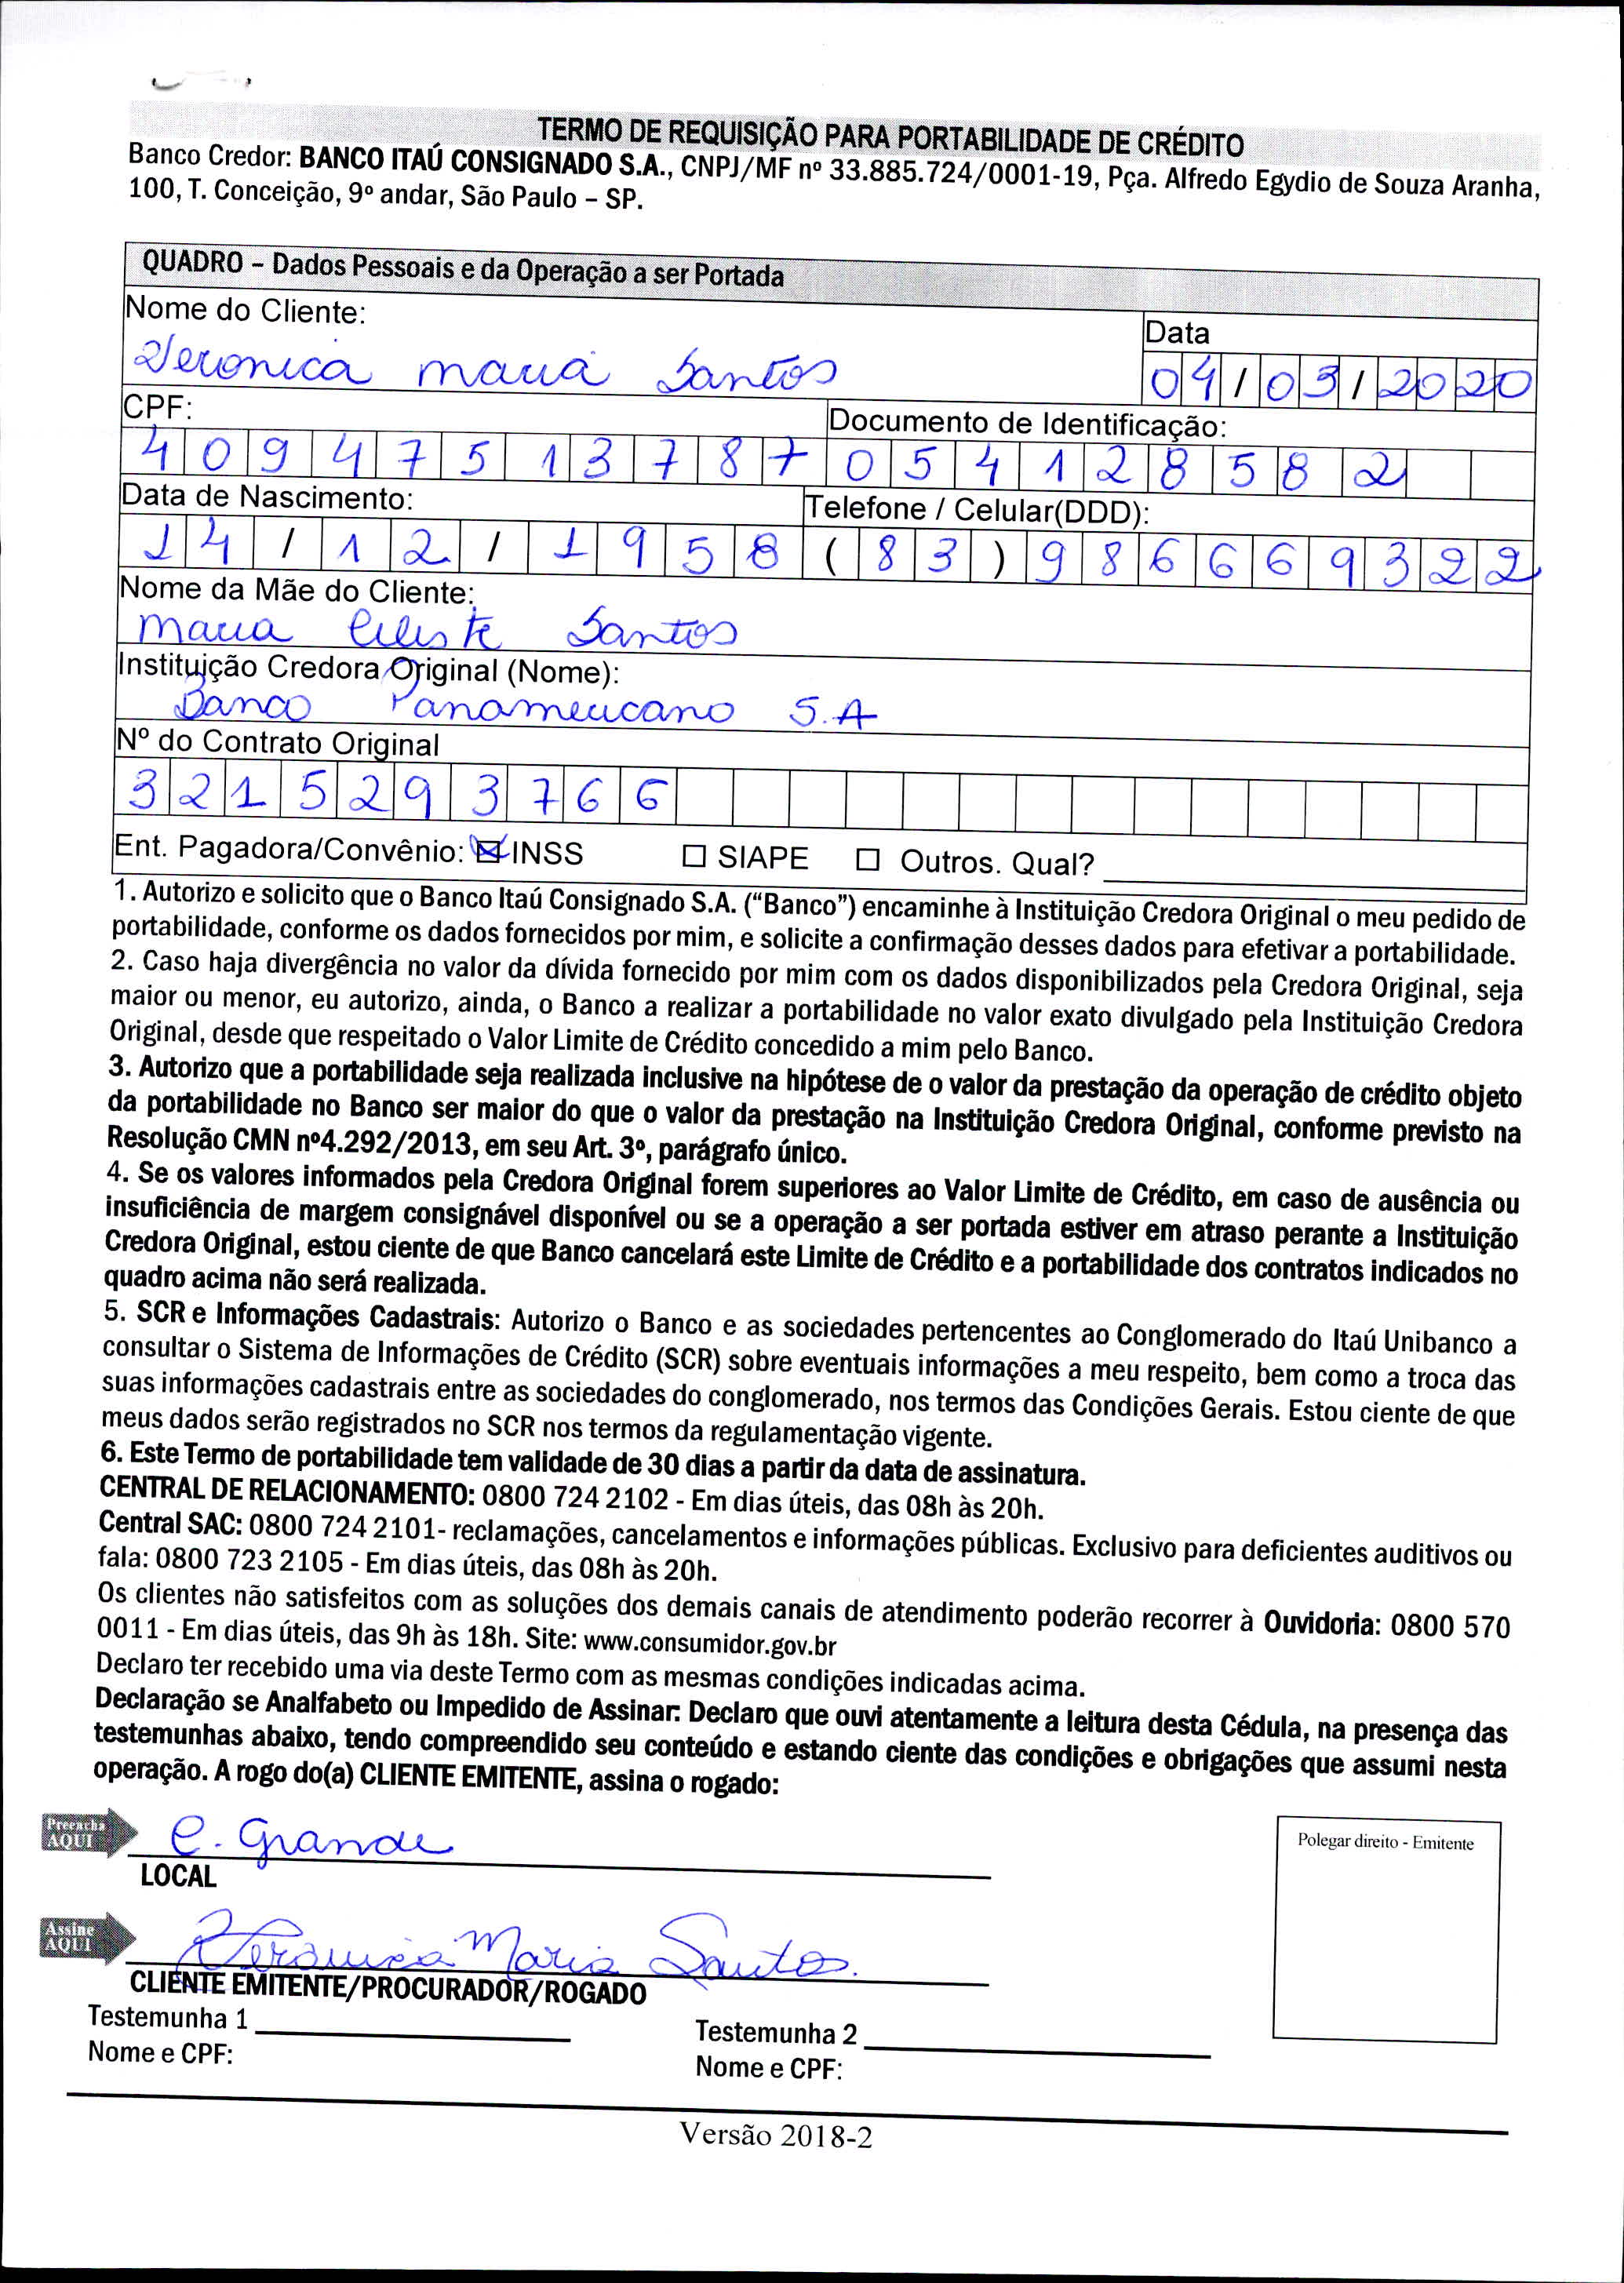 TERMO DE REQUISIÇÃO PARA PORTABILIDADE DE CRÉDITO
Banco Credor: BANCO ITAÚ CONSIGNADO S.A., CNPJ/MF nº 33.885.724/0001-19, Pça. Alfredo Egydio de Souza Aranha,
100, T. Conceição, 9º andar, São Paulo – SP.
QUADRO – Dados Pessoais e da Operação a ser Portada
Nome do Cliente:
Veronica maria Santos
Data
04/03/2020
CPF:
40947513787
Documento de Identificação:
054128582
Data de Nascimento:
14/12/1958
Telefone / Celular(DDD):
(83)986669322
Nome da Mãe do Cliente:
maria Celeste Santos
Instituição Credora Original (Nome):
Banco Panamericano S.A
Nº do Contrato Original
3215293766
Ent. Pagadora/Convênio: ☒ INSS ☐ SIAPE ☐ Outros. Qual?
1. Autorizo e solicito que o Banco Itaú Consignado S.A. (“Banco”) encaminhe à Instituição Credora Original o meu pedido de
portabilidade, conforme os dados fornecidos por mim, e solicite a confirmação desses dados para efetivar a portabilidade.
2. Caso haja divergência no valor da dívida fornecido por mim com os dados disponibilizados pela Credora Original, seja
maior ou menor, eu autorizo, ainda, o Banco a realizar a portabilidade no valor exato divulgado pela Instituição Credora
Original, desde que respeitado o Valor Limite de Crédito concedido a mim pelo Banco.
3. Autorizo que a portabilidade seja realizada inclusive na hipótese de o valor da prestação da operação de crédito objeto
da portabilidade no Banco ser maior do que o valor da prestação na Instituição Credora Original, conforme previsto na
Resolução CMN nº4.292/2013, em seu Art. 3º, parágrafo único.
4. Se os valores informados pela Credora Original forem superiores ao Valor Limite de Crédito, em caso de ausência ou
insuficiência de margem consignável disponível ou se a operação a ser portada estiver em atraso perante a Instituição
Credora Original, estou ciente de que Banco cancelará este Limite de Crédito e a portabilidade dos contratos indicados no
quadro acima não será realizada.
5. SCR e Informações Cadastrais: Autorizo o Banco e as sociedades pertencentes ao Conglomerado do Itaú Unibanco a
consultar o Sistema de Informações de Crédito (SCR) sobre eventuais informações a meu respeito, bem como a troca das
suas informações cadastrais entre as sociedades do conglomerado, nos termos das Condições Gerais. Estou ciente de que
meus dados serão registrados no SCR nos termos da regulamentação vigente.
6. Este Termo de portabilidade tem validade de 30 dias a partir da data de assinatura.
CENTRAL DE RELACIONAMENTO: 0800 724 2102 - Em dias úteis, das 08h às 20h.
Central SAC: 0800 724 2101- reclamações, cancelamentos e informações públicas. Exclusivo para deficientes auditivos ou
fala: 0800 723 2105 - Em dias úteis, das 08h às 20h.
Os clientes não satisfeitos com as soluções dos demais canais de atendimento poderão recorrer à Ouvidoria: 0800 570
0011 - Em dias úteis, das 9h às 18h. Site: www.consumidor.gov.br
Declaro ter recebido uma via deste Termo com as mesmas condições indicadas acima.
Declaração se Analfabeto ou Impedido de Assinar: Declaro que ouvi atentamente a leitura desta Cédula, na presença das
testemunhas abaixo, tendo compreendido seu conteúdo e estando ciente das condições e obrigações que assumi nesta
operação. A rogo do(a) CLIENTE EMITENTE, assina o rogado:
Preencha
AQUI
C. Grande
LOCAL
Polegar direito - Emitente
Assine
AQUI
Veronica Maria Santos.
CLIENTE EMITENTE/PROCURADOR/ROGADO
Testemunha 1
Testemunha 2
Nome e CPF:
Nome e CPF:
Versão 2018-2